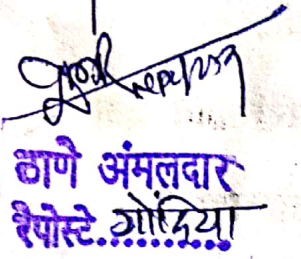 ठाणे अंमलदार
रेपोस्टे.गोंदिया